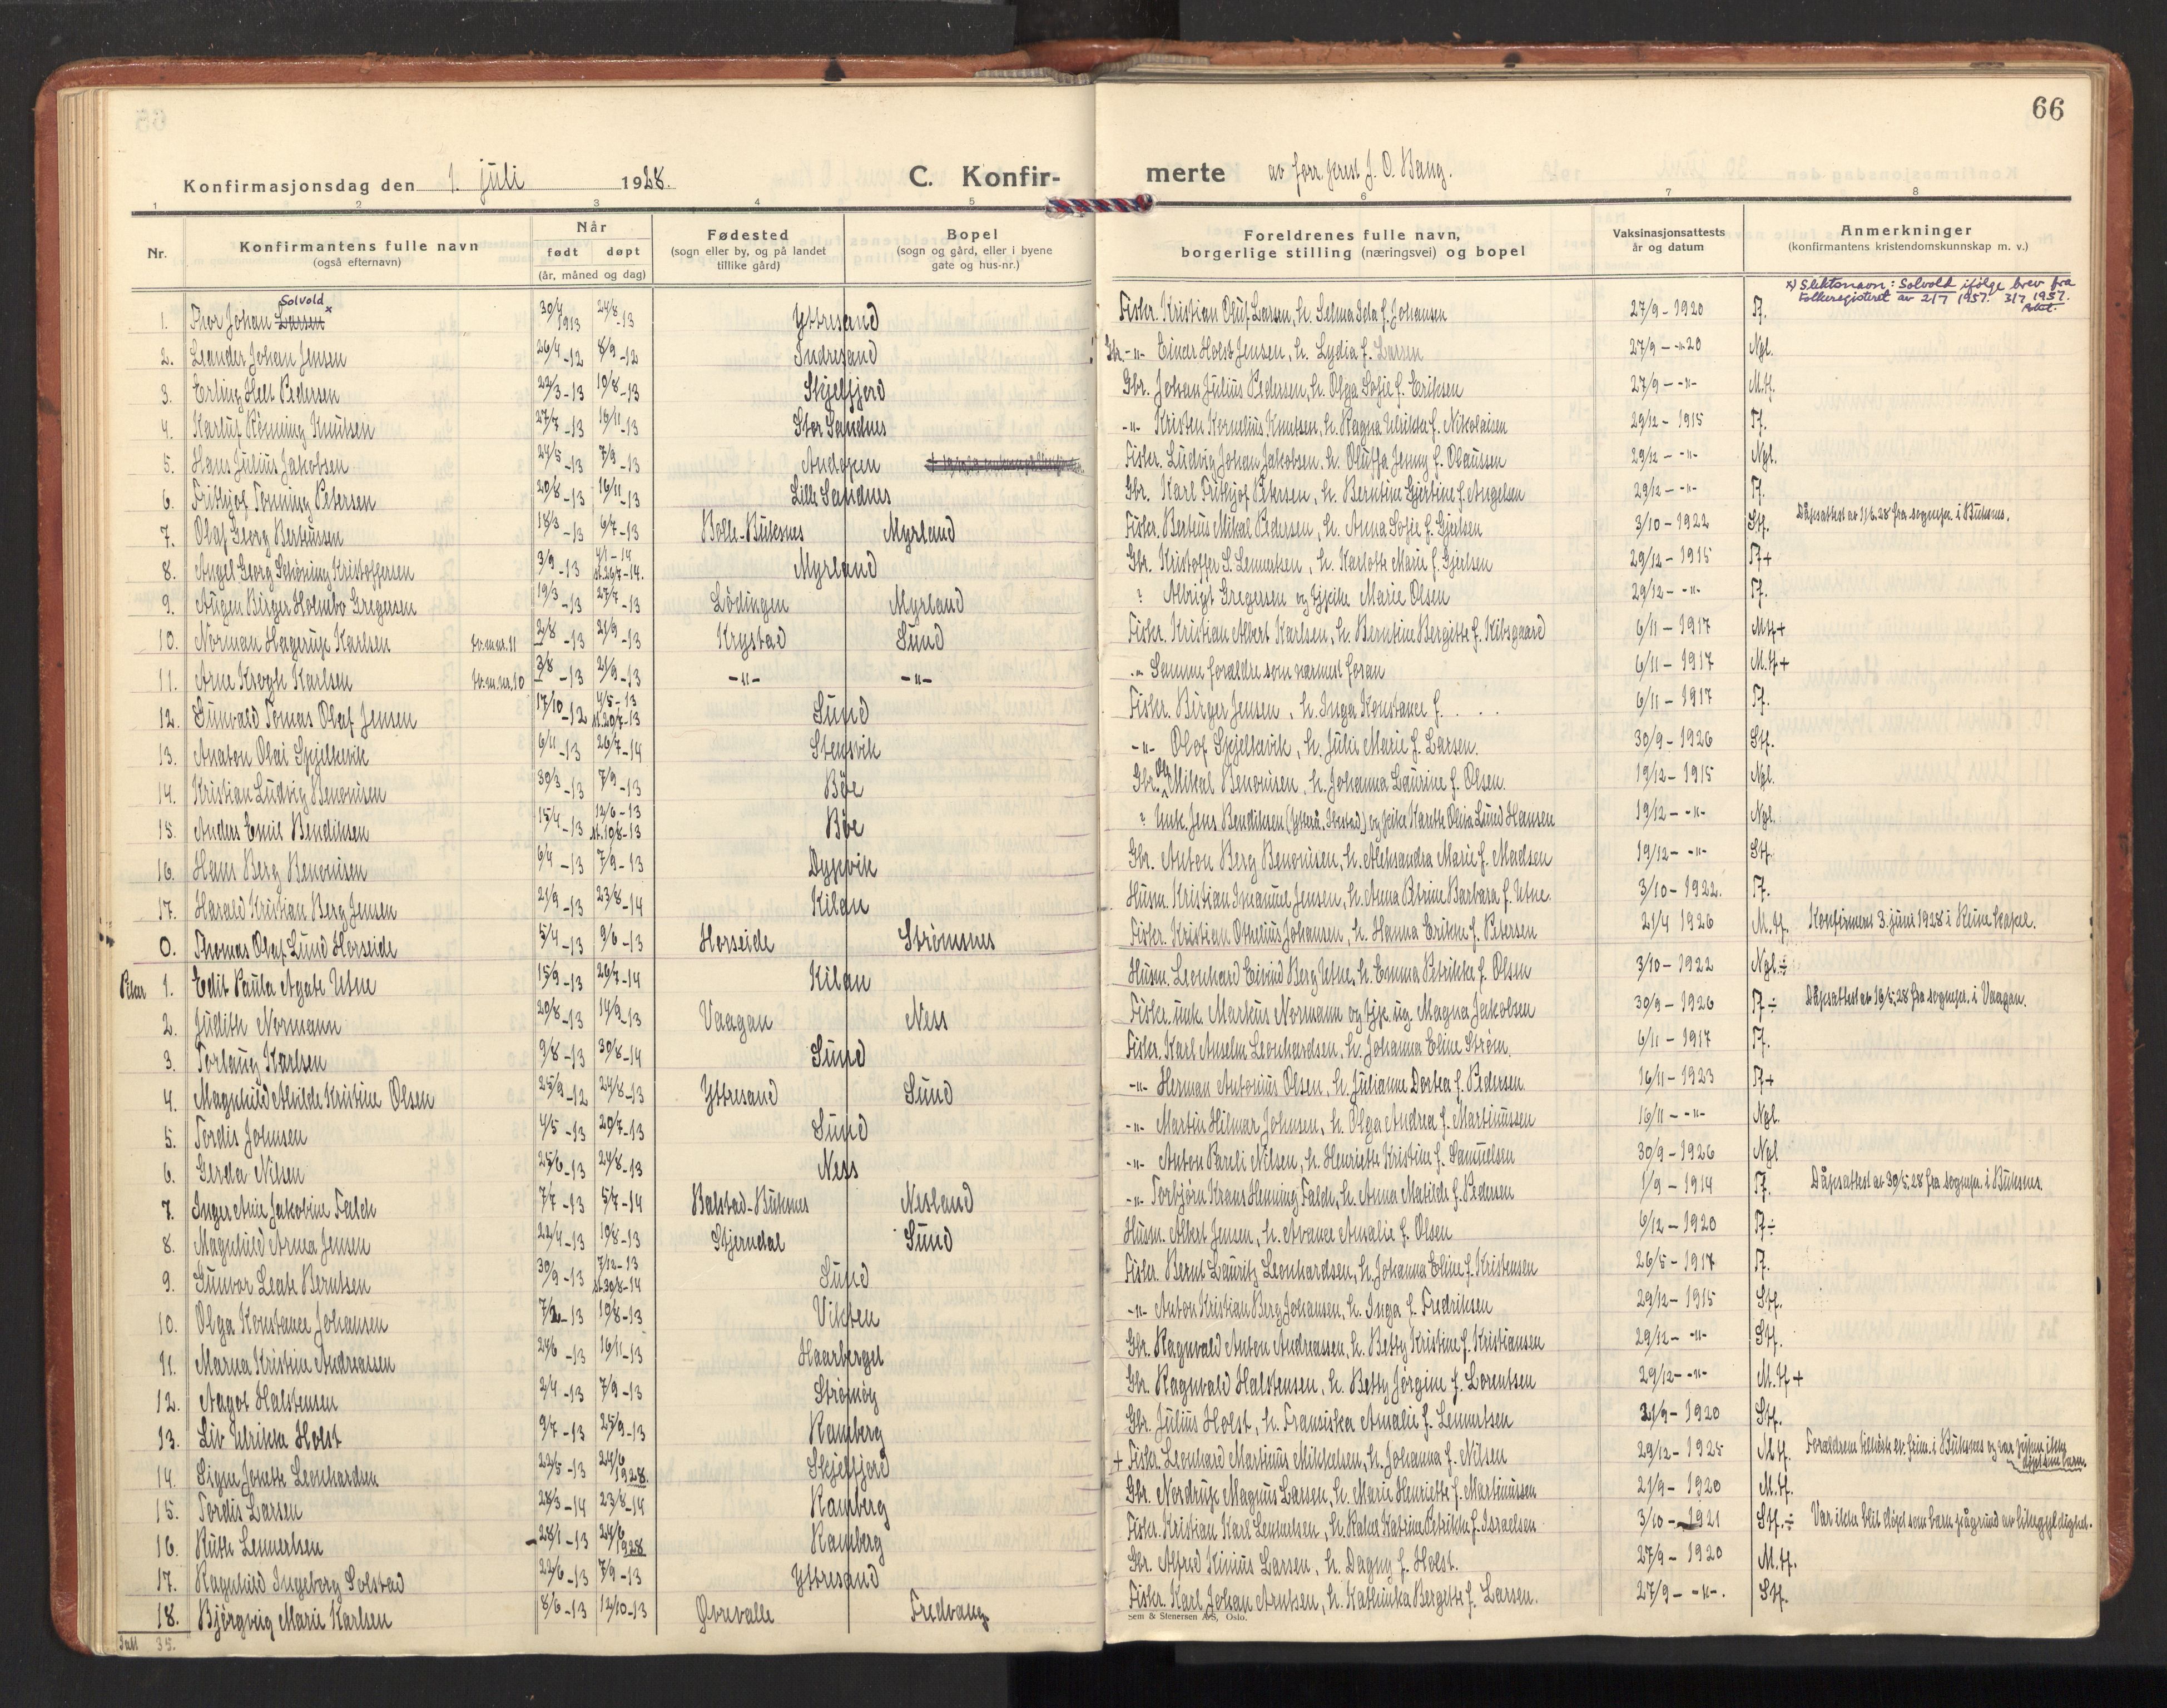 66
Konfirmasjonsdag den 1. juli 1928.
C. Konfirmerte av forr. prest J. O. Bang.
1 2 3 4 5 6 7 8
Nr. Konfirmantens fulle navn (også efternavn) Når født døpt (år, måned og dag) Fødested (sogn eller by, og på landet tillike gård) Bopel (sogn og gård, eller i byene gate og hus-nr.) Foreldrenes fulle navn, borgerlige stilling (næringsvei) og bopel Vaksinasjonsattests år og datum Anmerkninger (konfirmantens kristendomskunnskap m. v.)
x) Slektsnavn: Solvold ifølge brev fra
Folkeregisteret av 2/7 1957. 3/7 1957.
1. Thor Johan Larsen x Solvold 30/4 1913 24/8-13 Yttresand Fisker. Kristian Oluf Larsen, h. Selma Sela f. Johansen 27/9-1920 Tf.
2. Leander Johan Jensen 26/4-12 8/9-12 Indresand Gbr. -"- Einar Holst Jensen, h. Lydia f. Larsen 27/9--"-20 Ngl.
3. Erling Helt Pedersen 22/3-13 19/8-13 Skjelfjord Gbr. Johan Julius Pedersen, h. Olga Sofie f. Eriksen 27/9--"- M.tf.
4. Karluf Rønning Knutsen 27/7-13 16/11-13 Stor Sandnes -"- Kristen Kornelius Knutsen, h. Ragna Ulrikke f. Nikolaisen 29/12-1915 Tf.
5. Hans Julius Jakobsen 24/5-13 7/9-13 Andopen Fisker. Ludvig Johan Jakobsen, h. Oluffa Jenny f. Olaussen 29/12--"- Ngl.
6. Frithjof Torning Petersen 20/8-13 16/11-13 Lille Sandnes Gbr. Karl Frithjof Petersen, h. Berntine Gjertine f. Angelsen 29/12--"- Tf.
7. Olaf Georg Berteussen 18/3-13 6/7-13 Bolle-Buksnes Myrland Fisker. Berteus Mikal Pedersen, h. Anna Sofie f. Gjertsen 3/10-1922 Stf. Dåpsattest av 1/6.28 fra sognepr. i Buksnes.
8. Angel Georg Schöning Kristoffersen 3/9-13 4/1-14 st. 26/7-14. Myrland Gbr. Kristoffer S. Lennertsen, h. Karlotte Marie f. Gjertsen 29/12-1915 Tf+
9. Augen Birger Holmbo Gregersen 19/3-13 27/7-13 Lödingen Myrland ? Albrigt Gregersen og pike Marie Olsen 29/12--"- Tf.
10. Norman Hagerup Karlsen tv.m.nr.11 2/8-13 21/9-13 Krystad Sund Fisker. Kristian Albert Karlsen, h. Berntine Bergitte f. Kibsgaard 6/11-1917 Mtf+
11. Arne Krogh Karlsen tv.m.nr.10 3/8-13 21/9-13 -"- -"- -"- Samme foreldre som nærmest foran 6/11-1917 M.tf+
12. Gunvald Tomas Olaf Jensen 17/10-12 4/5-13 st. 20/7-13 Sund Fisker. Birger Jensen, h. Inga Konstance f. . . . 6/11-1917 Tf.
13. Anaton Olai Skjelkevik 6/11-13 26/7-14 Stensvik -"- Olaf Skjelkevik, h. Julie Marie f. Larsen. 30/9-1926 Stf.
14. Kristian Ludvig Benonisen 30/3-13 7/9-13 Böe Gbr. Ole Mikal Benonisen, h. Johanna Laurine f. Olsen. 19/12-1915 Ngl.
15. Anders Emil Bendiksen 15/4-13 12/6-13 st. 10/8-13 Böe ? Unk. Jens Bendiksen og pike Kaaette Olivia Lund Hansen 19/12--"- Ngl.
16. Hans Berg Benonisen 6/4-13 7/9-13 Dypvik Gbr. Anton Berg Benonisen, h. Aleksandra Marie f. Madsen 19/12--"- Stf.
17. Harald Kristian Berg Jensen 21/9-13 23/8-14 Kilan Husm. Kristian Imanuel Jensen, h. Anna Petrine Barbara f. Utne. 3/10-1922. Tf.
0. Thomas Olaf Lund Horseide 5/4-13 9/6-13 Horseide Strømsnes Fisker. Kristian Othelius Johansen, h. Hanna Erikke f. Petersen 21/4 1926 M.tf. Konfirmert 3. juni 1928 i Reine kapel.
Piker 1. Edit Paula Agate Utne 15/9-13 26/7-14 Kilan Husm. Leonhard Eivind Berg Utne, h. Emma Petrikke f. Olsen 3/10-1922 Ngl.÷
2. Judith Normann 20/8-13 14/9-13 Vaagan Ness Fisker. unk. Markus Normann og pk. ug. Magna Jakobsen 30/9-1926 Tf÷ Dåpsattest av 16/5.28 fra sognepr. i Vaagan.
3. Torlaug Karlsen 9/8-13 30/8-14 Sund Fisker. Karl Anselm Leonhardsen, h. Johanna Eline Strøm. 6/11-1917 Tf.
4. Magnhild Alvilde Kristine Olsen 25/9-12 24/8-13 Yttresand Sund -"- Herman Antonius Olsen, h. Julianne Dortea f. Pedersen. 16/11-1923 Tf+
5. Tordis Johnsen 4/5-13 20/7-13 Sund -"- Martin Hilmar Johnsen, h. Olga Andrea f. Martinussen 16/11--"- Ngl.
6. Gerda Nilsen 25/6-13 24/8-13 Ness -"- Anton Pareli Nilsen, h. Henriette Kristine f. Samuelsen 30/9-1926 Ngl
7. Inger Anne Jakobine Falch 7/7-13 5/7-14 Balstad-Buksnes Nesland -"- Torbjörn Krans Henning Falch, h. Anna Matilde f. Pedersen 1/9-1914 Tf. Dåpsattest av 30/5.28 fra sognepr. i Buksnes.
8. Magnhild Anna Jensen 22/4-13 19/8-13 Stjerndal Sund Husm. Albert Jensen, h. Avance Amalie f. Olsen 6/12-1920 Tf÷
9. Gunvor Leate Berntsen 30/9-13 7/12-13 st. 30/8-14 Sund Fisker. Bernt Lauritz Leonhardsen, h. Johanna Eline f. Kristensen 26/5-1917 Tf.
10. Olga Konstance Johansen 7/2-13 19/8-13 Vikten -"- Anton Kristian Berg Johansen, h. Inga f. Fredriksen 29/12-1915 Stf.
11. Marna Kristine Andreassen 24/6-13 16/11-13 Haarberget Gbr. Ragnvald Anton Andreassen, h. Betsy Kristine f. Kristiansen 29/12--"- Stf.
12. Aagot Halstensen 2/4-13 7/9-13 Strömöy Gbr. Ragnvald Halstensen, h. Betzy Jörgine f. Lorentsen 29/12--"- M.tf+
13. Liv Ulrikka Holst 9/7-13 25/9-13 Ramberg Gbr. Julius Holst, h. Fransiska Amalie f. Lennertsen 21/9-1920 Stf.
14. Signe Jonette Leonhardsen 22/5-13 24/6 1928. Skjelfjord + Fisker. Leonhard Martinus Mikkelsen, h. Johanna f. Nilsen 29/12-1925 Mtf. Foreldrene tilhørte ev. frim. i Buksnes og var
döpt sine barn.
15. Tordis Larsen 28/3-14 23/8-14 Ramberg Gbr. Nordrup Magnus Larsen, h. Marie Henriette f. Martinussen 21/9-1920 M.tf.
16. Ruth Lennertsen 28/1-13 24/6 1928 Ramberg Fisker. Kristian Karl Lennertsen, h. Rakel Katrine Petrikke f. Israelsen 3/10-1921 Stf.÷ Var ikke blit døpt som barn på grund av likegyldighet.
17. Ragnhild Ingeborg Solstad 22/6-13 7/9-13 Yttresand Gbr. Alfred Kinius Larsen, h. Dagny f. Holst. 27/9-1920 M.tf.
18. Bjørgveig Marie Karlsen 8/6-13 12/10-13 Øvrevalle Fredvang Fisker. Karl Johan Arntsen, h. Kathinka Bergette f. Larsen. 27/9--"-. Stf.
Iallt 35.
Sem & Stenersen A/S, Oslo.